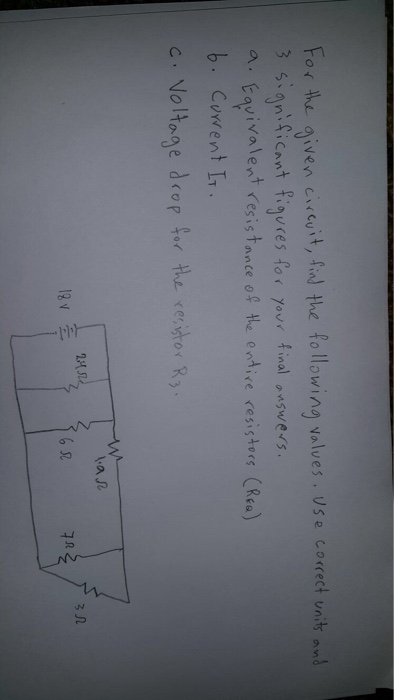 For the given circuit, find the following values. Use correct units and
3 significant figures for your final answers.
a. Equivalent resistance of the entire resistors (REQ)
b. Current IT.
c. Voltage drop for the resistor R3.
1.9Ω
18V
24Ω
6Ω
7Ω
3Ω